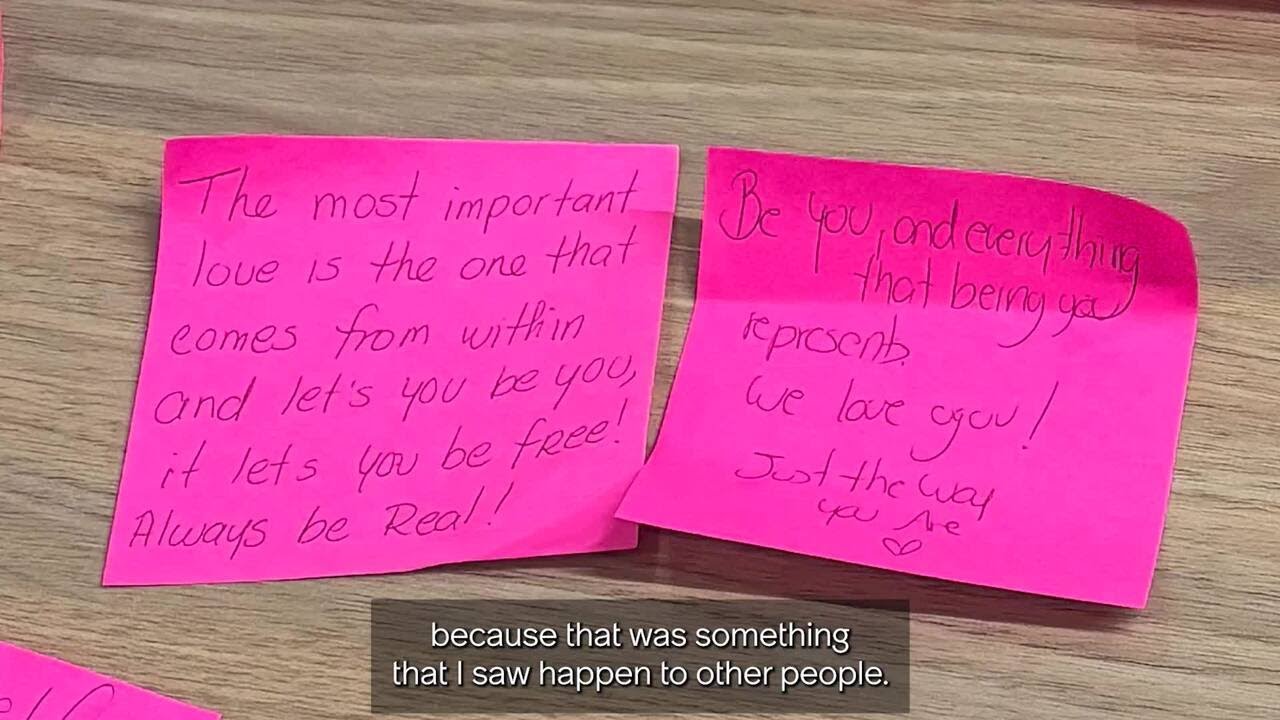 The most important
love is the one that
comes from within
and let's you be you,
it lets you be free!
Always be Real!
Be you, and everything
that being you
represents.
We love you!
Just the way
you Are
because that was something
that I saw happen to other people.